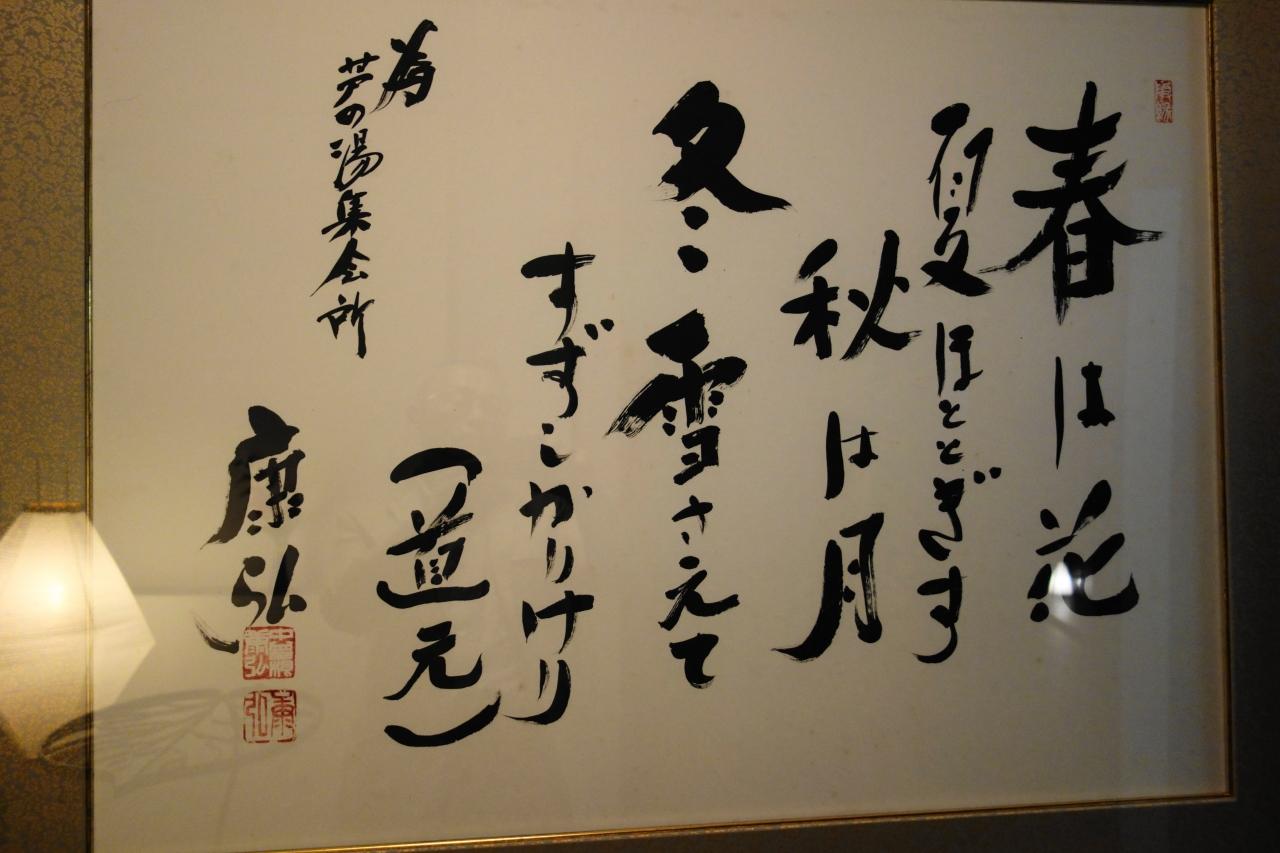 春は花
夏ほととぎす
秋は月
冬雪さえて
すずしかりけり
（道元）
為
芦の湯集会所
康弘
中曽根康弘
康弘